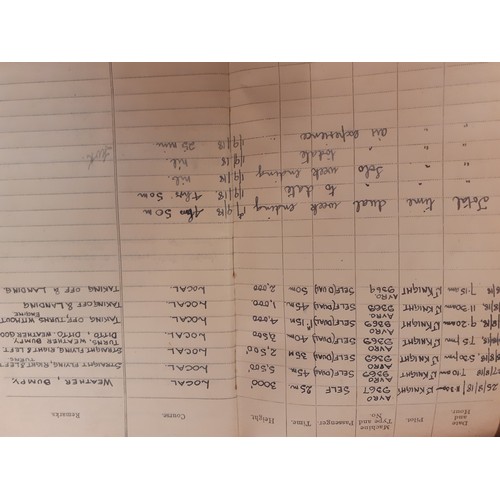 Date and Hour. Pilot. Machine Type and No. Passenger Time. Height. Course. Remarks.
25/8/18 Lt KNIGHT AVRO 9567 SELF 25m 3000 LOCAL WEATHER, BUMPY.
7/8/18 7-10am Lt KNIGHT AVRO 9569 SELF(DUAL) 45m 5,500 LOCAL STRAIGHT FLYING, RIGHT & LEFT TURNS
Lt KNIGHT AVRO 9569 SELF(DUAL) 35m 2,500 LOCAL STRAIGHT FLYING RIGHT & LEFT TURNS. WEATHER BUMPY.
7-5pm Lt KNIGHT AVRO 9569 SELF(DUAL) 40m 3,500 LOCAL. DITTO, DITTO, WEATHER GOOD
9-20am Lt KNIGHT AVRO 9569 SELF(DUAL) 15m 4,000 LOCAL TAKING OFF, TURNS WITHOUT ENGINE
Lt KNIGHT AVRO SELF(DUAL) 45m 1,000 LOCAL TAKING OFF & LANDING
7-15am Lt KNIGHT AVRO 9569 SELF(DUAL) 50m 2,000 LOCAL TAKING OFF & LANDING.
Total time dual week ending 1/9/18 4hrs 50m
" " " to date 1/9/18. 4hrs 50m
" " Solo week ending 1/9/18 nil.
" " " to date 1/9/18 nil.
" " air experience 1/9/18 25 min.